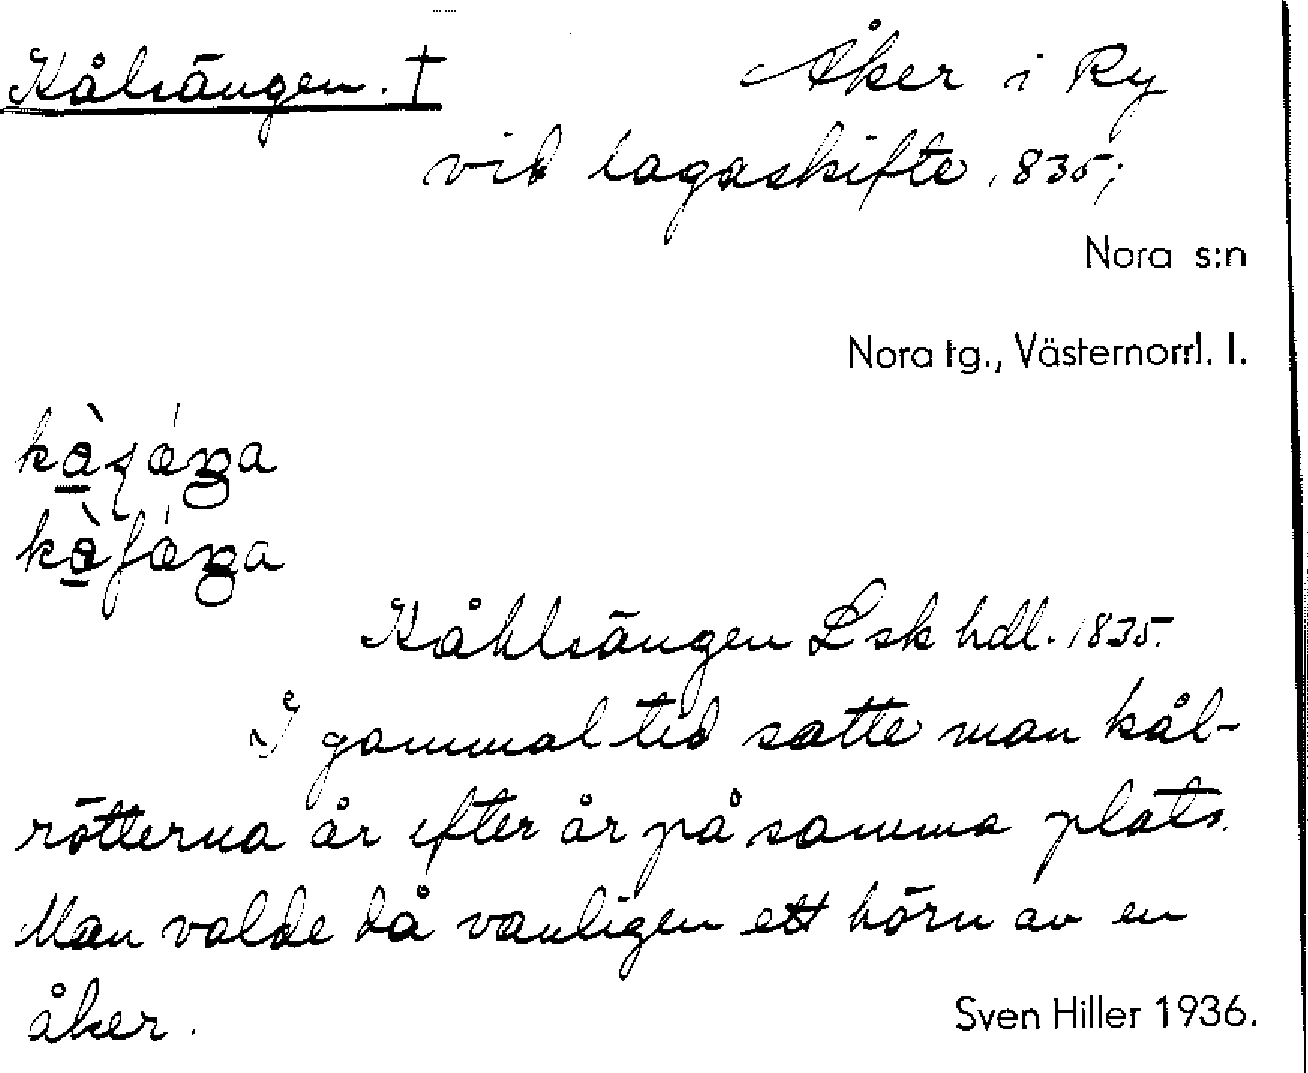 Kålsängen. †
Åker i Ry
vid lagaskifte 1835;
Nora s:n
Nora tg., Västernorrl. l.
Kåhlsängen Lsk hdl. 1835.
I gammal tid satte man kål-
rötterna år efter år på samma plats.
Man valde då vanligen ett hörn av en
åker.
Sven Hiller 1936.